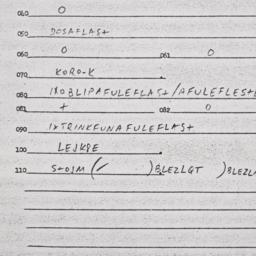 040 O
050 DOSAFLAS+
060 O 061 O
070 KORO-K
080 1XOBLIPAFULEFLAS+/AFULEFLES+E
081 + 082 O
090 1XTRINKFUNAFULEFLAS+
100 LEJKPE
110 S+OJM (/ )BLEZLGT )BLEZL